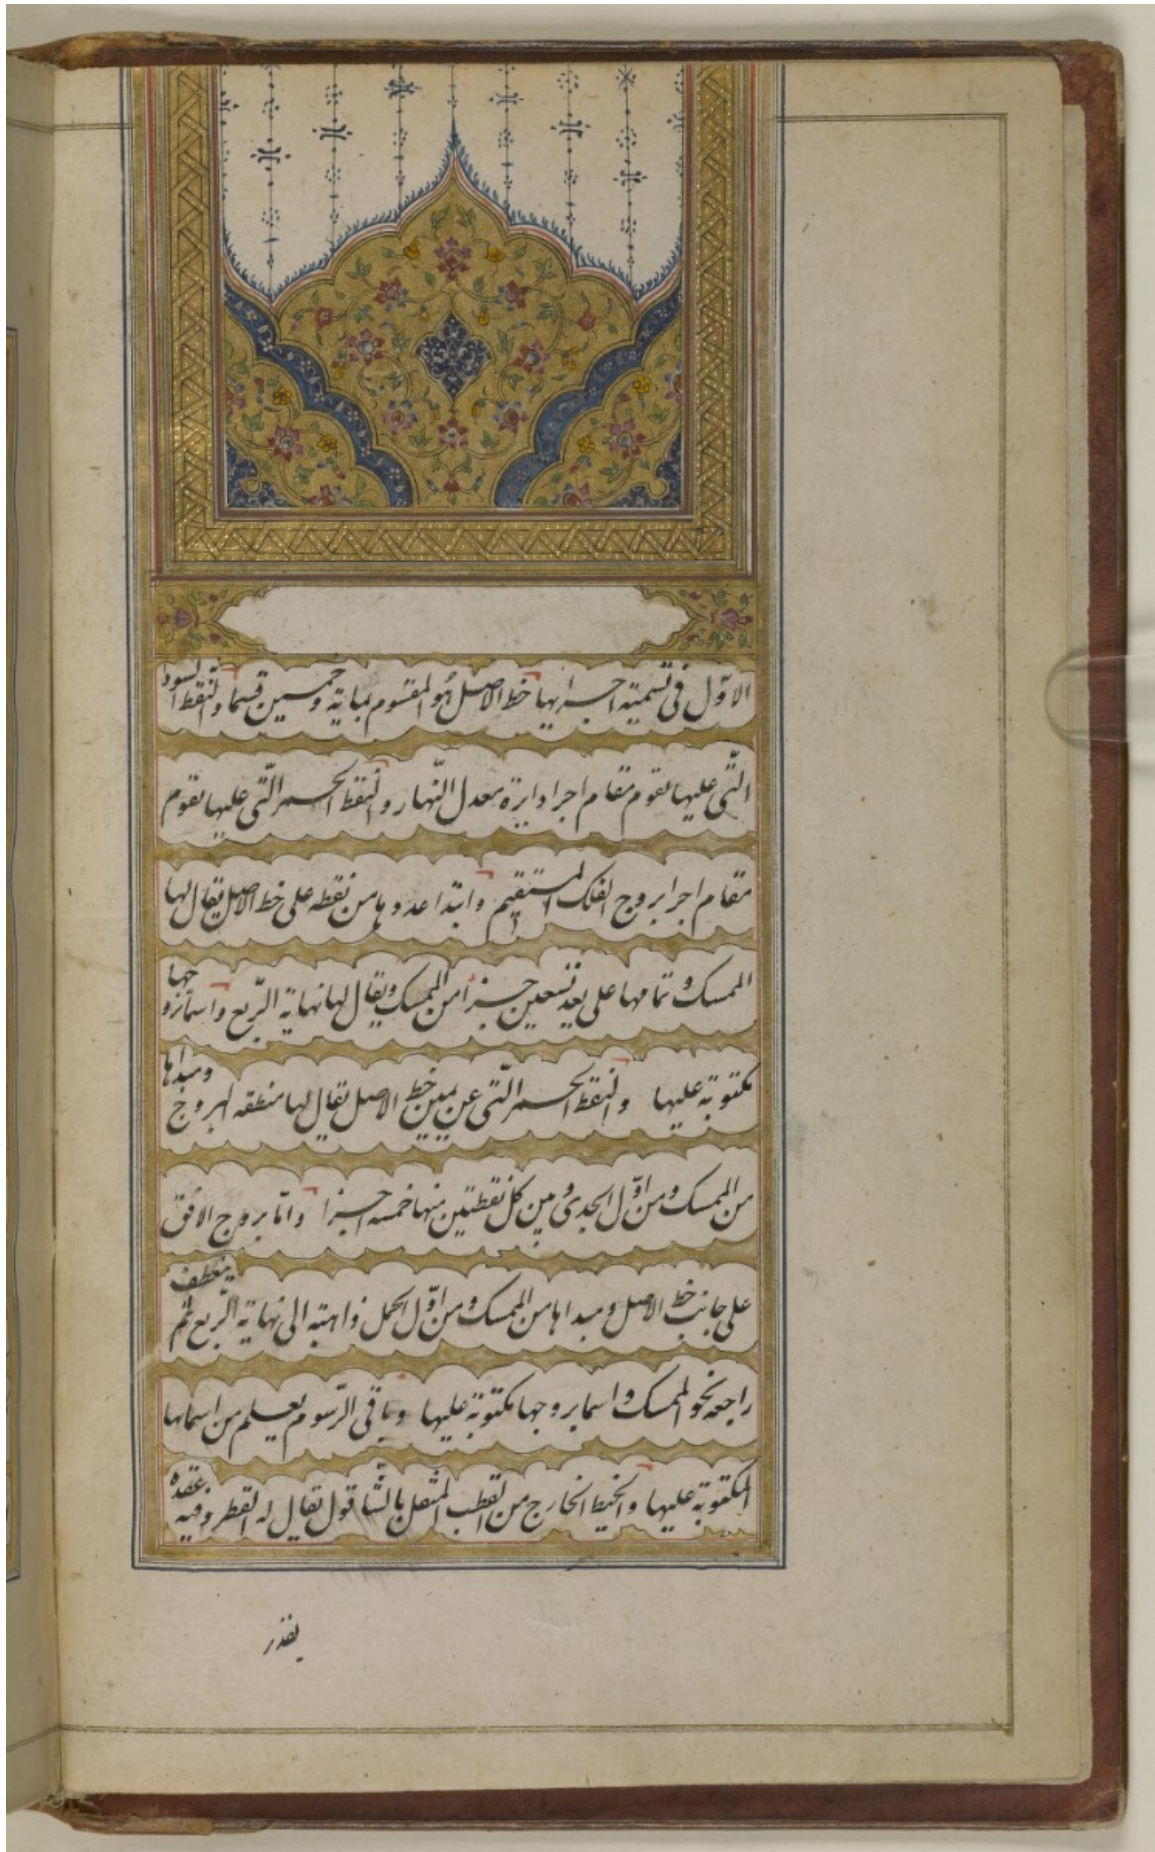 الاوّل فى تسمية اجزايها خط الاصل هو المقسوم بماية وخمسين قسما والنّقط السود
الّتى عليها تقوم مقام اجزا دايرة معدل النّهار والنقط الحمر الّتى عليها تقوم
مقام اجزا بروج الفلك المستقيم وابتدا عددها من نقطه على خط الاصل يقال لها
الممسك وتمامها على بعد تسعين جزأ من الممسك ويقال لها نهاية الرّبع واسما بروجها
مكتوبة عليها والنقط الحمر الّتى عن يمين خط الاصل يقال لها منطقه البروج ومبداها
من الممسك ومن اوّل الجدى وبين كل نقطتين منها خمسه اجزا وامّا بروج الافق
على جانب خط الاصل ومبداها من الممسك ومن اوّل الحمل ذاهبة الى نهاية الرّبع ثم ينعطف
راجعه نحو الممسك واسما بروجها مكتوبة عليها وباقى الرّسوم يعلم من اسمائها
المكتوبة عليها والخيط الخارج من القطب المثقل بالشّاقول يقال له القطر وفيه عقده